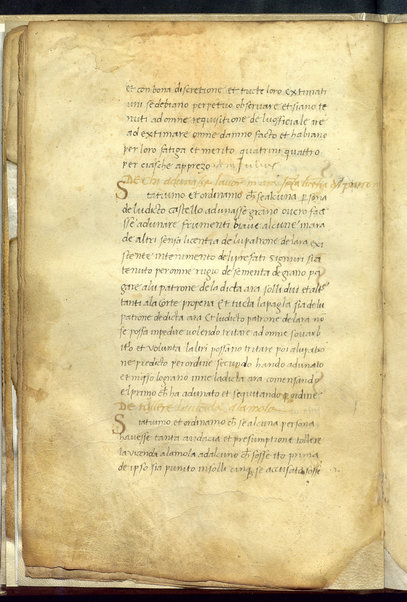 et con bona discretione et tucte loro extimati
uni se debiano perpetuo observare et siano te
nuti ad onne requisitione de lu officiale ire
ad extimare onne danno facto et habiano
per loro fatiga et merito quatrini quattro
per ciasche apprezo
De chi adunasse lavore in ara senza licentia del patrone
Statuimo et ordinamo ch se alcuna persona
de lu dicto castello adunasse grano overo fa
sse adunare frumenti biave alcune in ara
de altri senza licentia de lu patrone de la ara exi
stente in tenimento de li prefati signuri sia
tenuto per onne rugio de sementa de grano pa
gare a lu patrone de la dicta ara solli dui et altr
tanti a la corte propena Et tucta la paglia sia de lu
patrone de dicta ara Et lu dicto patrone de la ara no
se possa impedire volendo tritare ad onne so arb
itro et volunta la altri possano tritare poi a lu patro
ne predicto per ordine secundo hando adunato
et miso lo grano in ne la dicta ara comensando
el primo ch ha adunato et sequitando l ordine
De tollere la vicenda a la mola
Statuimo et ordinamo ch se alcuna persona
havesse tanta audacia et presumptione tollere
la vicenda a la mola ad alcuno ch fosse ito prima
de ipso sia punito in solli cinq se accusato fosse